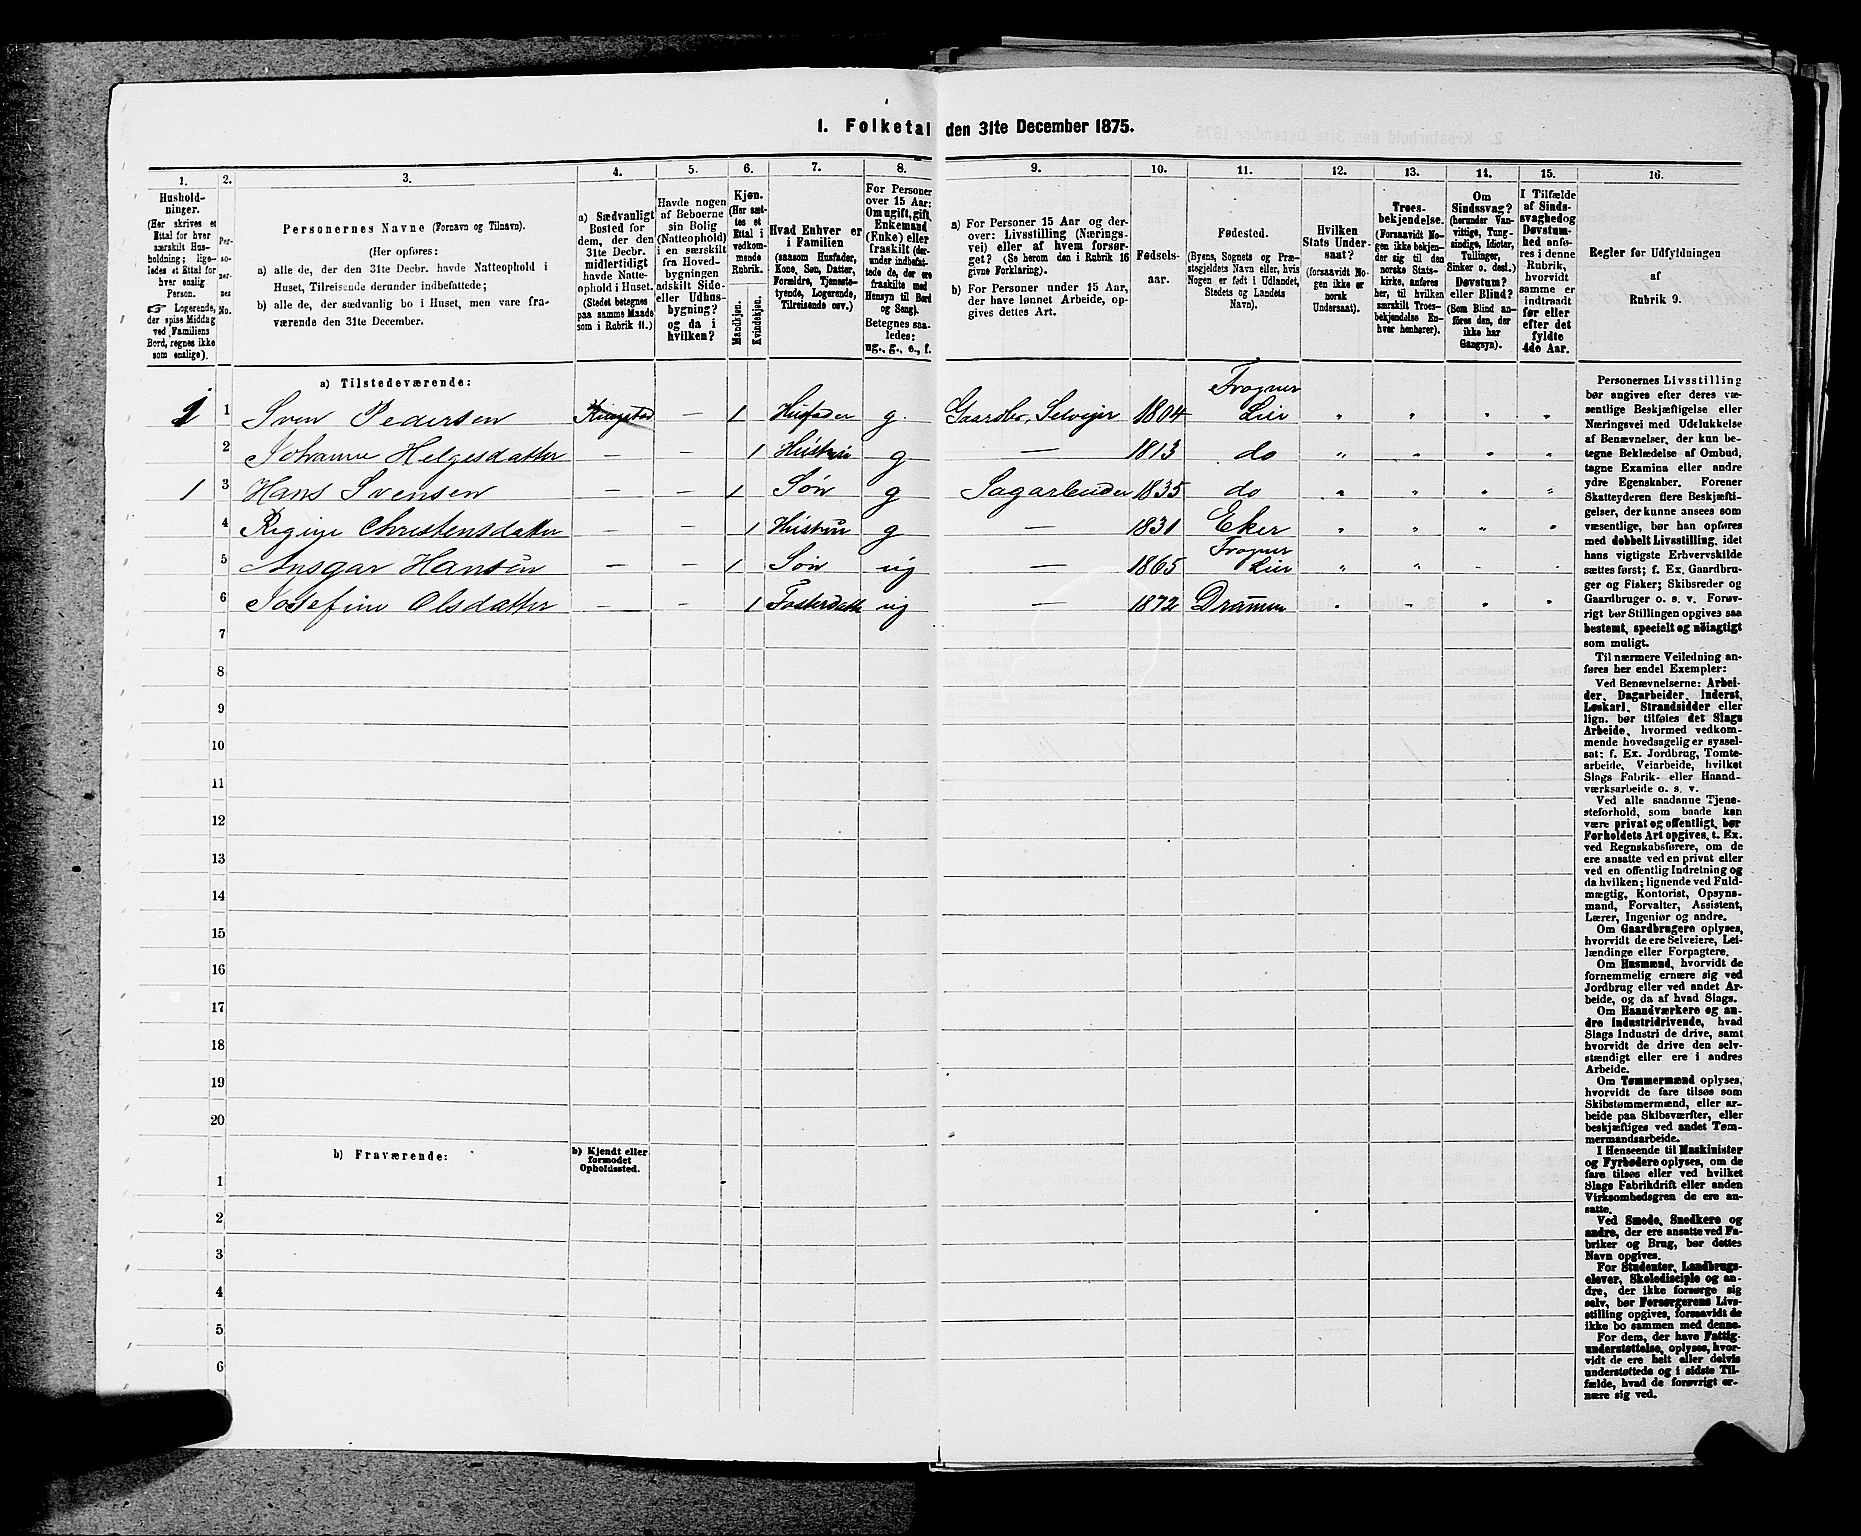 1. Folketal den 31te December 1875.
1. 2. 3. 4. 5. 6. 7. 8. 9. 10. 11. 12. 13. 14. 15. 16.
Husholdninger.
(Her skrives et
Ettal for hver
særskilt Husholdning;
ligeledes et Ettal for
hver enslig
Person.
☞ Logerende,
der spise Middag
ved Familiens
Bord, regnes ikke
som enslige).
Personernes No.
Personernes Navne (Fornavn og Tilnavn).
(Her opføres:
a) alle de, der den 31te Decbr. havde Natteophold i
Huset, Tilreisende derunder indbefattede;
b) alle de, der sædvanlig bo i Huset, men vare fraværende den 31te December.
a) Sædvanligt
Bosted for
dem, der den
31te Decbr.
midlertidigt
havde Natteophold i Huset.
(Stedet betegnes
paa samme Maade
som i Rubrik 11.)
Havde nogen
af Beboerne
sin Bolig
(Natteophold)
i en særskilt
fra Hovedbygningen
adskilt Side-
eller Udhusbygning?
og da i
hvilken?
Kjøn.
(Her sættes et
Ettal i
vedkommende
Rubrik.
Mandkjøn.
Kvindekjøn.
Hvad Enhver er
i Familien
(saasom Husfader,
Kone, Søn, Datter,
Forældre, Tjenestetyende, Logerende,
Tilreisende osv.)
For Personer
over 15 Aar:
Om ugift, gift,
Enkemand
(Enke) eller
fraskilt (derunder indbefattede de, der ere
fraskilte med
Hensyn til Bord
og Seng).
Betegnes saaledes:
ug., g., e., f.
a) For Personer 15 Aar og derover: Livsstilling (Næringsvei) eller af hvem forsørget? (Se herom den i Rubrik 16
givne Forklaring).
b) For Personer under 15 Aar,
der have lønnet Arbeide, opgives dettes Art.
Fødselsaar.
Fødested.
(Byens, Sognets og Præstegjeldets Navn eller, hvis
Nogen er født i Udlandet,
Stedets og Landets
Navn).
Hvilken
Stats Undersaat?
(forsaavidt Nogen ikke er
norsk
Undersaat).
Troesbekjendelse.
(Forsaavidt Nogen ikke bekjender sig til den
norske Statskirke, anføres
her, til hvilken
særskilt Troesbekjendelse Enhver henhører).
Om
Sindssvag?
(herunder Vanvittige, Tungsindige, Idioter,
Tullinger,
Sinker o. desl.)
Døvstum?
eller Blind?
(Som Blind anføres den, der
ikke har
Gangsyn).
I Tilfælde
af Sindssvaghed og
Døvstumhed anføres i denne
Rubrik,
hvorvidt
samme er
indtraadt
før eller
efter det
fyldte
4de Aar.
Regler for Udfyldningen
af
Rubrik 9.
a) Tilstedeværende:
1 1 Sven Pedersen — 1 Husfader g. Gaardbr, Selveier 1804 Frogner Lier " " " "
2 Johanne Helgesdatter — — 1 Hustru g — 1813 do " " " "
1 3 Hans Svensen — — 1 Søn g Sagarbeider 1835 do " " " "
4 Regine Christensdatter — — 1 Hustru g — 1831 Eker " " " "
5 Ansgar Hansen — — 1 Søn ug — 1865 Frogner Lier " " " "
6 Josefine Olsdatter — — 1 Fosterdatt ug — 1872 Drammen " " " "
7
8
9
10
11
12
13
14
15
16
17
18
19
20
b) Fraværende:
b) Kjendt eller
formodet
Opholdssted.
1
2
3
4
5
6
Personernes Livsstilling
bør angives efter deres væsentlige Beskjæftigelse eller
Næringsvei med Udelukkelse
af Benævnelser, der kun betegne Beklædelse af Ombud,
tagne Examina eller andre
ydre Egenskaber. Forener
Skatteyderen flere Beskjæftigelser, der kunne ansees som
væsentlige, bør han opføres
med dobbelt Livsstilling, idet
hans vigtigste Erhvervskilde
sættes først; f. Ex. Gaardbruger og Fisker; Skibsreder og
Gaardbruger o. s. v. Forøvrigt bør Stillingen opgives saa
bestemt, specielt og nøiagtigt
som muligt.
Til nærmere Veiledning anføres her endel Exempler:
Ved Benævnelserne: Arbeider, Dagarbeider, Inderst,
Løskarl, Strandsidder eller
lign. bør tilføies det Slags
Arbeide, hvormed vedkommende hovedsagelig er sysselsat; f. Ex. Jordbrug, Tomtearbeide, Veiarbeide, hvilket
Slags Fabrik- eller Haandværksarbeide o. s. v.
Ved alle saadanne Tjenesteforhold, som baade kan
være privat og offentligt, bør
Forholdets Art opgives, t. Ex.
ved Regnskabsførere, om de
ere ansatte ved en privat eller
ved en offentlig Indretning og
da hvilken; lignende ved Fuldmægtig, Kontorist, Opsynsmand, Forvalter, Assistent,
Lærer, Ingeniør og andre.
Om Gaardbrugere oplyses,
hvorvidt de ere Selveiere, Leilændinge eller Forpagtere.
Om Husmænd, hvorvidt de
fornemmelig ernære sig ved
Jordbrug eller ved andet Arbeide, og da af hvad Slags.
Om Haandværkere og andre Industridrivende, hvad
Slags Industri de drive, samt
hvorvidt de drive den selvstændigt eller ere i andres
Arbeide.
Om Tømmermænd oplyses,
hvorvidt de fare tilsøs som
Skibstømmermænd, eller arbeide paa Skibsværfter, eller
beskjæftiges ved andet Tømmermandsarbeide.
I Henseende til Maskinister
og Fyrbødere oplyses, om de
fare tilsøs eller ved hvilket
Slags Fabrikdrift eller anden
Virksomhedsgren de ere ansatte.
Ved Smede, Snedkere og
andre, der ere ansatte ved Fabriker og Brug, bør dettes
Navn opgives.
For Studenter, Landbrugselever, Skoledisciple og andre, der ikke forsørge sig
selv, bør Forsørgerens Livsstilling opgives, forsaavidt de
ikke bo sammen med denne.
For dem, der have Fattigunderstøttelse, oplyses, hvorvidt de ere helt eller delvis
understøttede og i sidste Tilfælde, hvad de forøvrigt ernære sig ved.